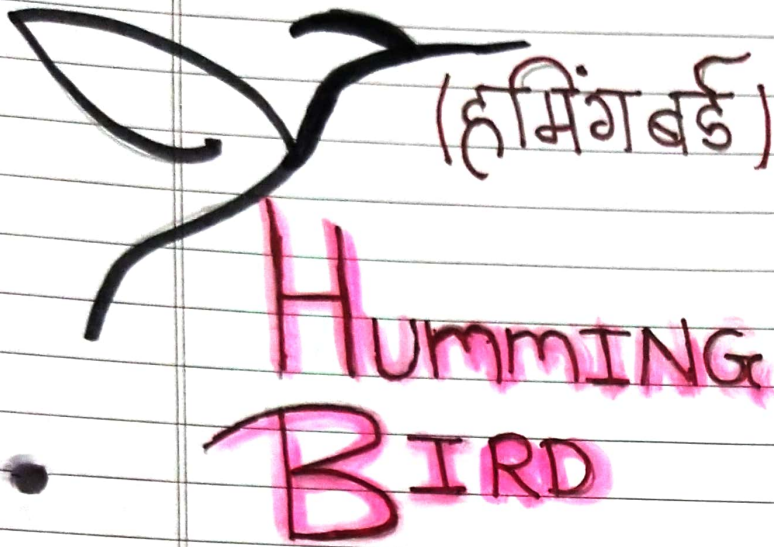 (हमिंग बर्ड)
HUMMING
BIRD